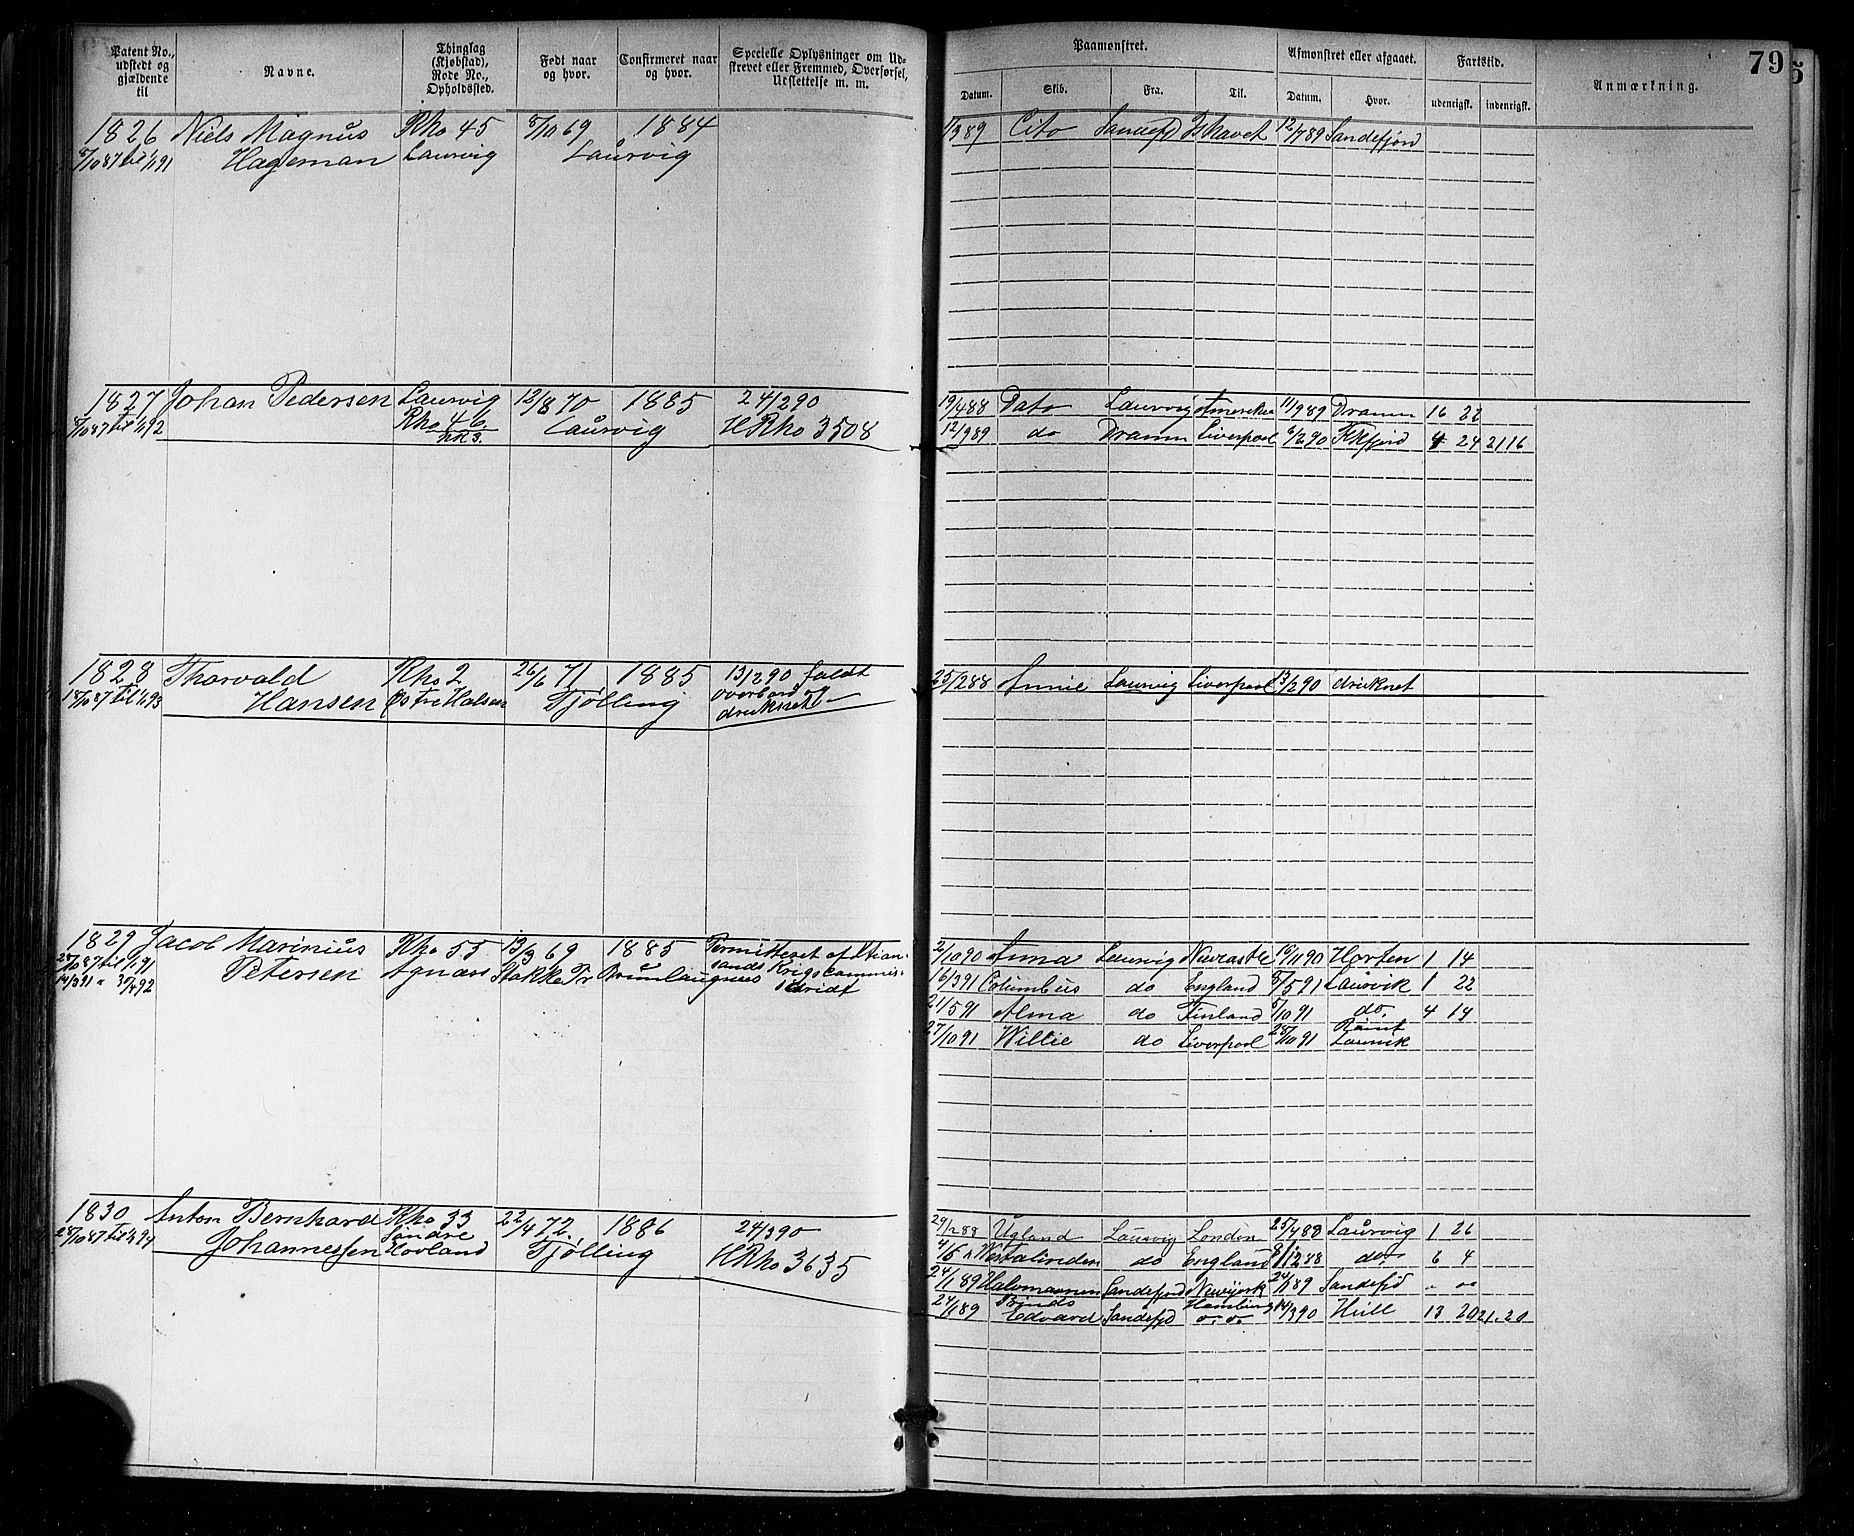 Patent No., udstedt og gjældende til
Navne.
Thinglag (Kjøbstad), Rode No., Opholdssted.
Født naar og hvor.
Confirmeret naar og hvor.
Specielle Oplysninger om Udskrevet eller Fremmed, Overførsel, Udslettelse m. m.
Paamønstret.
Datum. Skib. Fra. Til.
Afmønstret eller afgaaet.
Datum. Hvor.
Fartstid.
udenrigsk. indenrigsk.
Anmærkning.
79
5
1826 Niels Magnus Rho 45 8/10 69 1884
8/10 87 til 1/1 91 Hageman Laurvig Laurvig
1/3 89 Cito Sandefjd Ishavet 12/7 89 Sandefjord
1827 Johan Pedersen Laurvig 12/8 70 1885 24/2 90
8/10 87 til 1/1 92 Rho 46 Laurvig HRho 3508
19/4 88 Dato Laurvig Amerika 11/9 89 Dramm 16 22
12/9 89 do Dramm Liverpool 6/2 90 Fkfjord 4 24 21 16
1828 Thorvald Rho 2 26/6 71 1885 13/2 90 faldt
18/10 87 til 1/1 93 Hansen Østre Halsen Tjølling overbord og
druknet
25/2 88 Annie Laurvig Liverpool 13/2 90 druknet
1829 Jacob Marinius Rho 55 13/3 69 1885 Permitteret af Xtian-
28/10 87 til 1/1 91 Petersen Agnæss Stokke Pr Brunlaugnæs sands Krigscommis-
14/3 91 " 30/4 92 sariat
2/10 90 Alma Laurvig Newcastle 19/11 90 Horten 1 14
16/3 91 Columbus do England 8/5 91 Laurvik 1 22
21/5 91 Alma do Finland 5/10 91 do. 4 14
27/10 91 Willie do Liverpool 28/10 91 Rømt
Laurvik
1830 Anton Bernhard Rho 33 22/4 72. 1886 24/3 90
28/10 87 til 1/1 94 Johannessen Søndre Hovland Tjølling HRho 3635
29/2 88 Ugland Laurvig London 25/4 88 Laurvig 1 26
4/5 " Vestalinden do England 8/12 88 do. 6 4
24/1 89 Halvmaanen Sandefjord Newyork 24/1 89 Sandefjd " "
24/1 89 Prinds Edvard Sandefjd Hamburg 14/3 90 Hull 13 20 21. 20